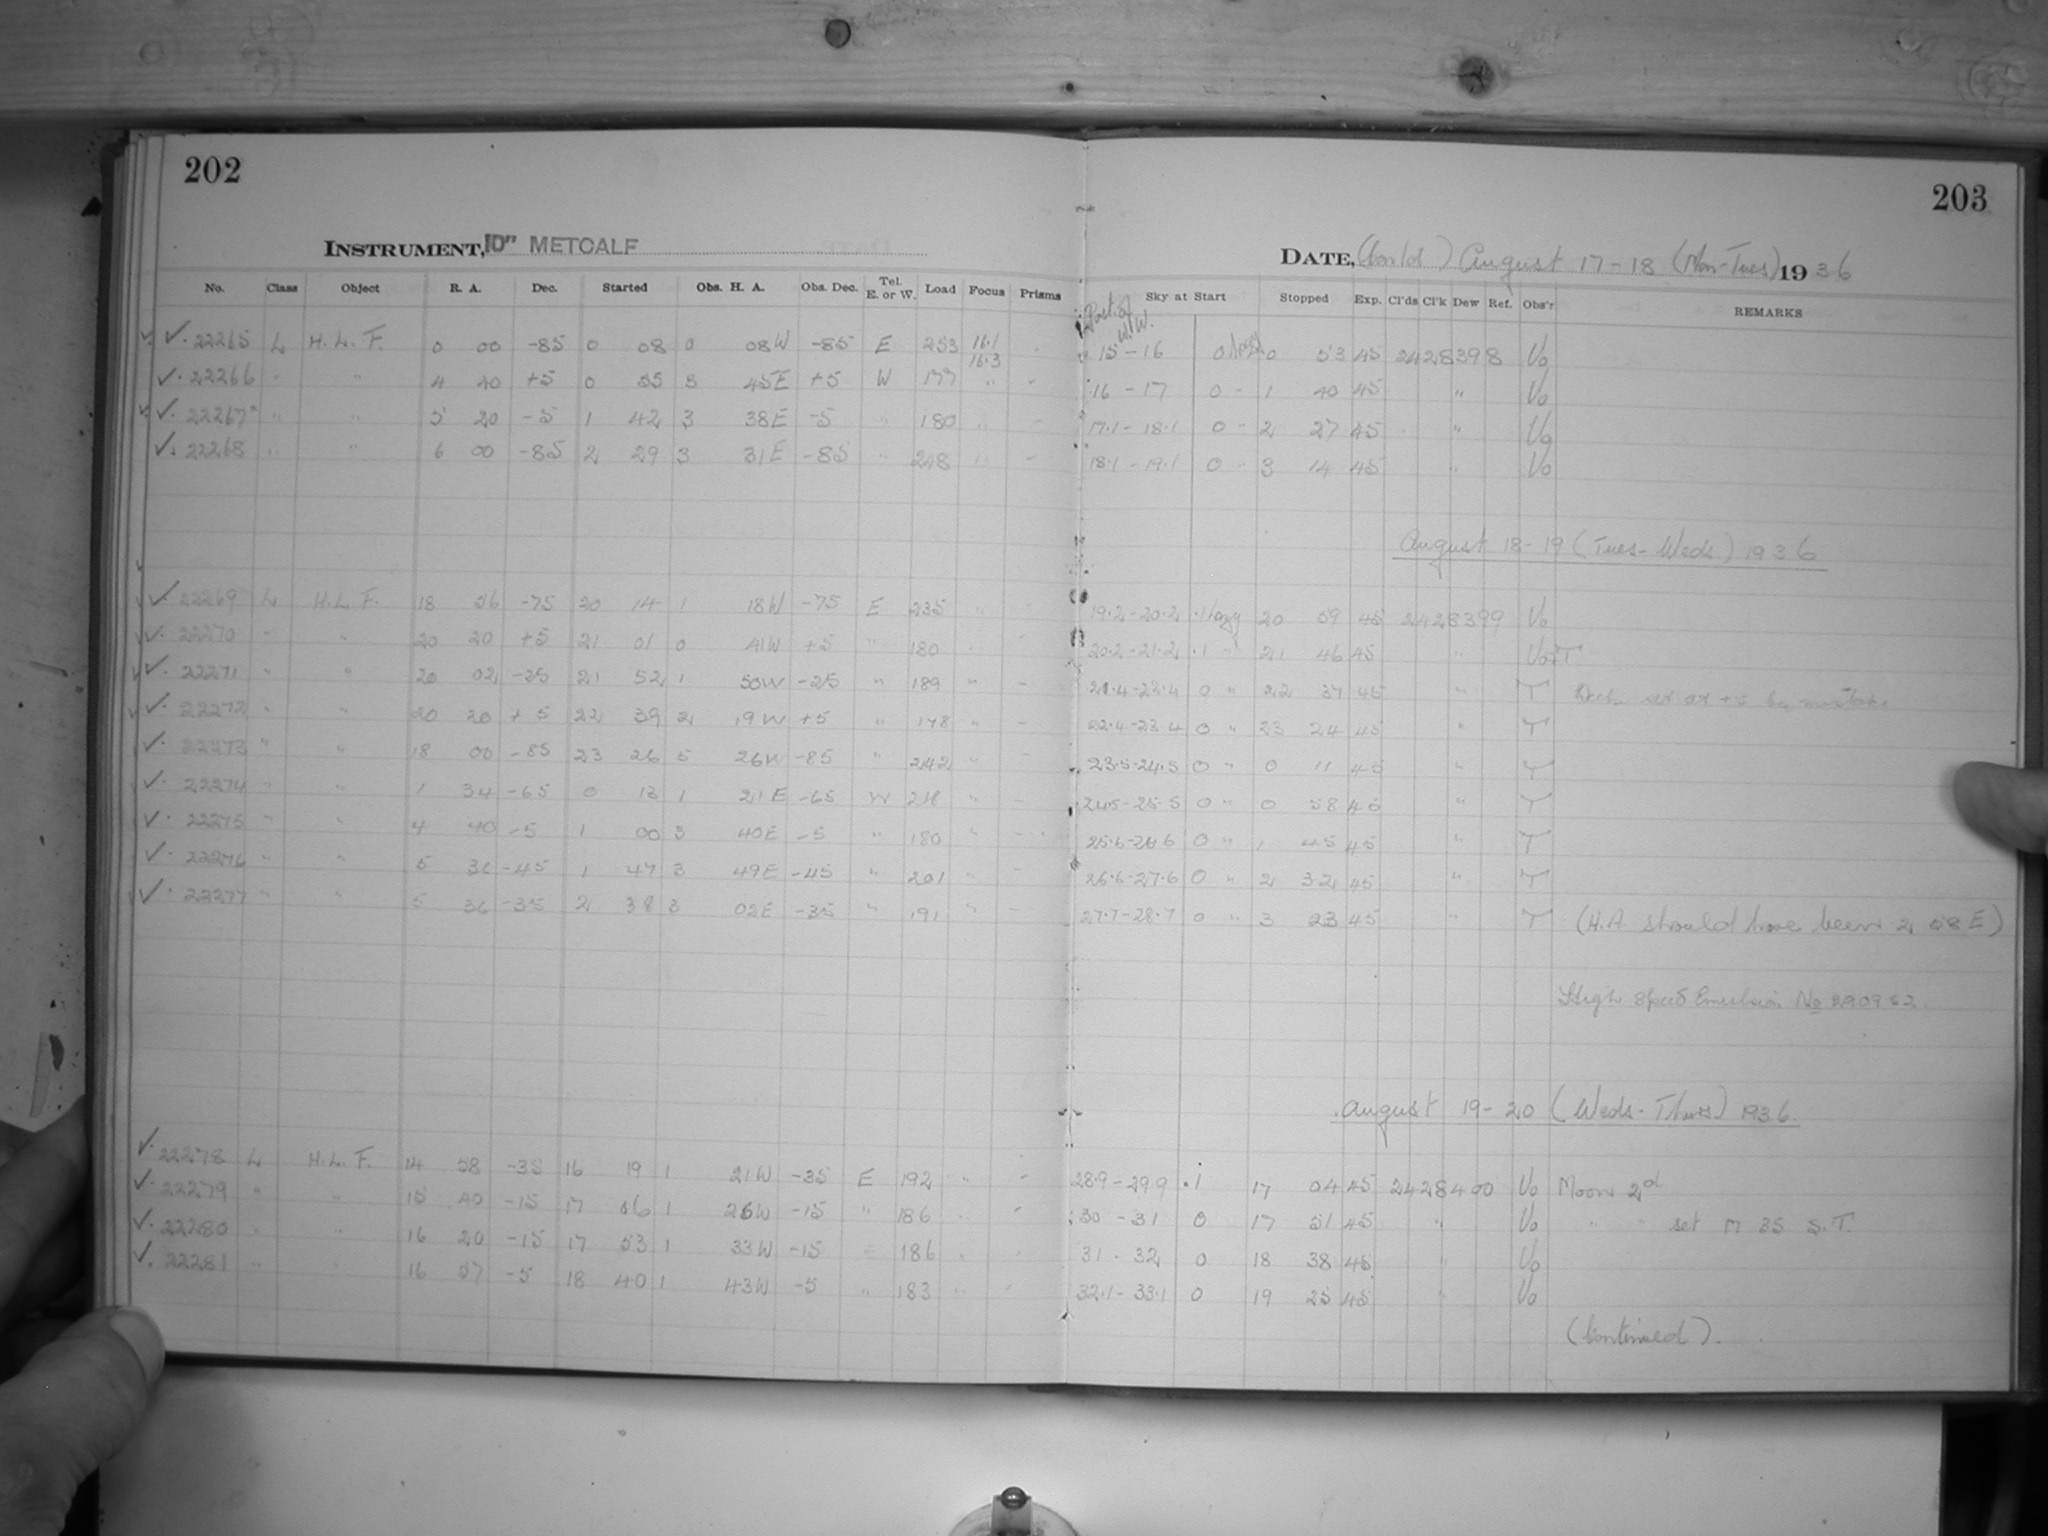 202
203
INSTRUMENT, 10" METCALF
DATE, (Cont'd) August 17-18 (Mon-Tues) 1936
No. Class Object R. A. Dec. Started Obs. H. A. Obs. Dec. Tel. E. or W. Load Focus Prisms Sky at Start Stopped Exp. Cl'ds Cl'k Dew Ref. Obs'r REMARKS
22265 L H.L.F. 0 00 -85 0 08 0 08W -85 E 253 16.1 16.3 15-16 0 0 53 45 2428398 Vo
22266 " " 4 20 +5 0 55 3 45E +5 W 177 " 16-17 0 " 1 40 45 " Vo
22267 " " 5 20 -5 1 42 3 38E -5 " 180 " 17.1-18.1 0 " 2 27 45 " Vo
22268 " " 6 00 -85 2 29 3 31E -85 " 248 " 18.1-19.1 0 " 3 14 45 " Vo
August 18-19 (Tues-Weds) 1936
22269 L H.L.F. 18 56 -75 20 14 1 18W -75 E 235 " 19.2-20.2 .1 hazy 20 59 45 2428399 Vo
22270 " " 20 20 +5 21 01 0 41W +5 " 180 " 20.2-21.2 .1 " 21 46 45 " Vo+T
22271 " " 20 02 -25 21 52 1 50W -25 " 189 " - 21.4-22.4 0 " 22 37 45 " T Dec. set at +5 by mistake
22272 " " 20 20 +5 22 39 2 19W +5 " 178 " - 22.4-23.4 0 " 23 24 45 " T
22273 " " 18 00 -85 23 26 5 26W -85 " 242 " - 23.5-24.5 0 " 0 11 45 " T
22274 " " 1 34 -65 0 13 1 21E -65 W " - 24.5-25.5 0 " 0 58 45 " T
22275 " " 4 40 -5 1 00 3 40E -5 " 180 " - 25.6-26.6 0 " 1 45 45 " T
22276 " " 5 36 -45 1 47 3 49E -45 " 201 " - 26.6-27.6 0 " 2 32 45 " T
22277 " " 5 36 -35 2 38 3 02E -35 " 191 " - 27.7-28.7 0 " 3 23 45 " T (H.A. should have been 2 58 E)
High Speed Emulsion No 290952
August 19-20 (Weds-Thurs) 1936.
22278 L H.L.F. 14 58 -35 16 19 1 21W -35 E 192 " 28.9-29.9 .1 17 04 45 2428400 Vo Moon 2d
22279 " " 15 40 -15 17 06 1 26W -15 " 186 " 30-31 0 17 51 45 " Vo " " set 17 35 S.T.
22280 " " 16 20 -15 17 53 1 33W -15 " 186 " 31-32 0 18 38 45 " Vo
22281 " " 16 57 -5 18 40 1 43W -5 " 183 " 32.1-33.1 0 19 25 45 " Vo
(Continued).